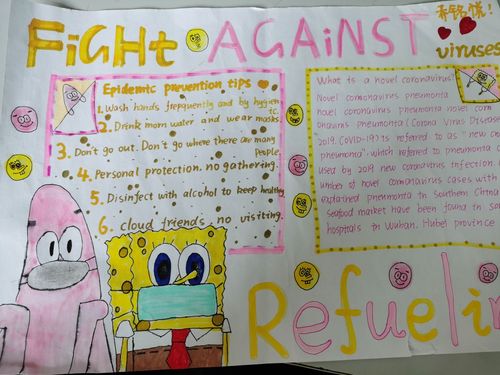 FiGHt AGAiNST
viruses
Epidemic prevention tips
1. Wash hands frequently and by hygien
ic.
2. Drink morn water and wear masks
3. Don't go out. Don't go where there are many
people.
4. Personal protection. no gathering.
5. Disinfect with alcohol to keep healthy
6. cloud friends. no visiting.
What is a novel coronavirus
Novel comonavirus pneumonia
novel coronavirus pneumonia novel com
onavirus pneumonia (Corona Virus Disea
2019. COVID-19) is referred to as "new co
pneumonia". which referred to pneumonia c
used by 2019 new coronavirus infection
umber of novel comonavirus cases with
explained pneumonia in Southern China
Seafood market have been found in so
hospitals in Wuhan. Hubei province
Refuelin